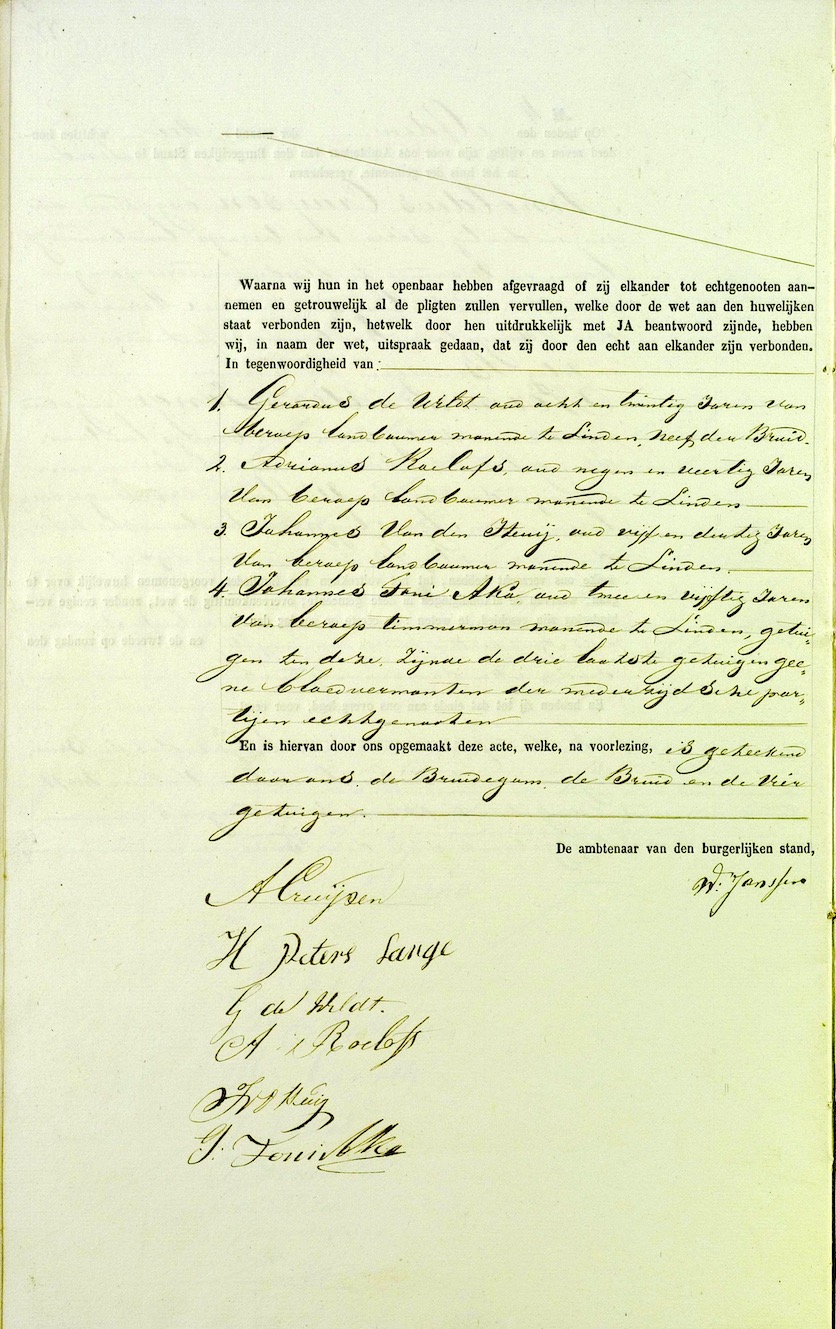 Waarna wij hun in het openbaar hebben afgevraagd of zij elkander tot echtgenooten aan-
nemen en getrouwelijk al de pligten zullen vervullen, welke door de wet aan den huwelijken
staat verbonden zijn, hetwelk door hen uitdrukkelijk met JA beantwoord zijnde, hebben
wij, in naam der wet, uitspraak gedaan, dat zij door den echt aan elkander zijn verbonden.
In tegenwoordigheid van:
1. Gerardus de Wildt oud acht en twintig Jaren van
beroep landbouwer wonende te Linden, neef der Bruid.
2. Adrianus Roelofs, oud negen en veertig Jaren
van beroep landbouwer wonende te Linden
3. Johannes van den Heuij, oud vijf en dertig Jaren
van beroep landbouwer wonende te Linden.
4. Johannes Toni Aka, oud twee en vijftig Jaren
van beroep timmerman wonende te Linden, getui-
gen ten deze. Zijnde de drie laatste getuigen gee-
ne bloedverwanten der wederzijdsche par-
tijen echtgenooten
En is hiervan door ons opgemaakt deze acte, welke, na voorlezing, is geteekend
door ons, de Bruidegom, de Bruid en de vier
getuigen.
De ambtenaar van den burgerlijken stand,
W. Janssen
A Cruijsen
H Peters Lange
G de Wildt.
A Roelofs
JVD Heuij
J. Toni Aka